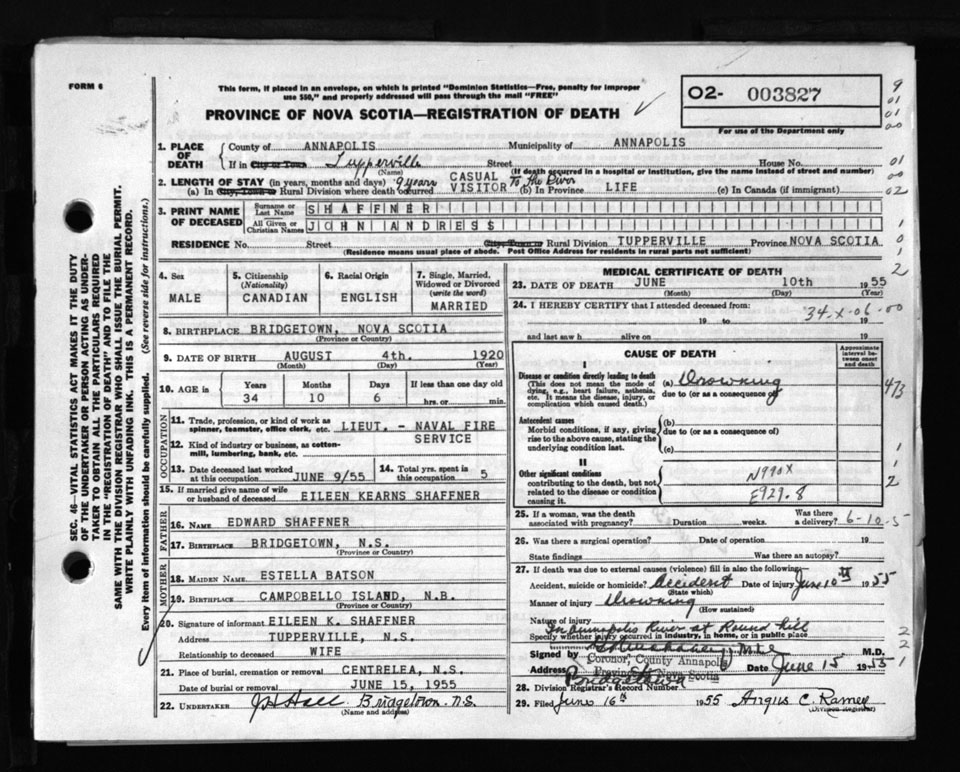 FORM 6
This form, if placed in an envelope, on which is printed "Dominion Statistics—Free, penalty for improper
use $50," and properly addressed will pass through the mail "FREE"
PROVINCE OF NOVA SCOTIA—REGISTRATION OF DEATH
O2- 003827
For use of the Department only
1. PLACE OF DEATH
County of ANNAPOLIS Municipality of ANNAPOLIS
If in City or Town Tupperville Street House No.
(Name) (If death occurred in a hospital or institution, give its name instead of street and number)
2. LENGTH OF STAY (in years, months and days) 9 years CASUAL VISITOR To the River
(a) In Rural Division where death occurred (b) In Province LIFE (c) In Canada (if immigrant)
3. PRINT NAME OF DECEASED
Surname or Last Name SHAFFNER
All Given or Christian Names JOHN ANDRESS
RESIDENCE No. Street City/Town or Rural Division TUPPERVILLE Province NOVA SCOTIA
(Residence means usual place of abode. Post Office Address for residents in rural parts not sufficient)
4. Sex
MALE
5. Citizenship
(Nationality)
CANADIAN
6. Racial Origin
ENGLISH
7. Single, Married,
Widowed or Divorced
(write the word)
MARRIED
8. BIRTHPLACE BRIDGETOWN, NOVA SCOTIA
(Province or Country)
9. DATE OF BIRTH AUGUST 4th. 1920
(Month) (Day) (Year)
10. AGE in Years Months Days If less than one day old
34 10 6 hrs. or min.
OCCUPATION
11. Trade, profession, or kind of work as
spinner, teamster, office clerk, etc. LIEUT. - NAVAL FIRE
SERVICE
12. Kind of industry or business, as cotton-
mill, lumbering, bank, etc.
13. Date deceased last worked
at this occupation JUNE 9/55
14. Total yrs. spent in
this occupation 5
15. If married give name of wife
or husband of deceased EILEEN KEARNS SHAFFNER
FATHER
16. NAME EDWARD SHAFFNER
17. BIRTHPLACE BRIDGETOWN, N.S.
(Province or Country)
MOTHER
18. MAIDEN NAME ESTELLA BATSON
19. BIRTHPLACE CAMPOBELLO ISLAND, N.B.
(Province or Country)
20. Signature of informant EILEEN K. SHAFFNER
Address TUPPERVILLE, N.S.
Relationship to deceased WIFE
21. Place of burial, cremation or removal CENTRELEA, N.S.
Date of burial or removal JUNE 15, 1955
22. UNDERTAKER J H Hall Bridgetown. N.S.
(Name and address)
MEDICAL CERTIFICATE OF DEATH
23. DATE OF DEATH JUNE 10th 1955
(Month) (Day) (Year)
24. I HEREBY CERTIFY that I attended deceased from:
19 to 19
34-X-06-00
and last saw h alive on 19
CAUSE OF DEATH
Approximate interval between onset and death
I
Disease or condition directly leading to death
(This does not mean the mode of
dying, e.g., heart failure, asthenia,
etc. It means the disease, injury, or
complication which caused death.)
(a) Drowning
due to (or as a consequence of)
473
Antecedent causes
Morbid conditions, if any, giving
rise to the above cause, stating the
underlying condition last.
(b)
due to (or as a consequence of)
(c)
II
Other significant conditions
contributing to the death, but not
related to the disease or condition
causing it.
N990X
E929.8
25. If a woman, was the death
associated with pregnancy? Duration weeks. Was there
a delivery? 6-10-5
26. Was there a surgical operation? Date of operation 19
State findings Was there an autopsy?
27. If death was due to external causes (violence) fill in also the following:
Accident, suicide or homicide? Accident Date of injury June 10th 1955
(State which)
Manner of injury Drowning
(How sustained)
Nature of injury
In Annapolis River at Round Hill
Specify whether injury occurred in industry, in home, or in public place
Signed by M.D.
Coroner, County Annapolis
Address Province Nova Scotia Date June 15 1955
Bridgetown
28. Division Registrar's Record Number
29. Filed June 16th 1955 Angus C. Ramey
(Division Registrar)
SEC. 46—VITAL STATISTICS ACT MAKES IT THE DUTY
OF THE UNDERTAKER OR PERSON ACTING AS UNDER-
TAKER TO OBTAIN ALL THE PARTICULARS REQUIRED
IN THE "REGISTRATION OF DEATH" AND TO FILE THE
SAME WITH THE DIVISION REGISTRAR WHO SHALL ISSUE THE BURIAL PERMIT.
WRITE PLAINLY WITH UNFADING INK. THIS IS A PERMANENT RECORD.
Every item of information should be carefully supplied. (See reverse side for instructions.)
9
01
01
00
01
00
02
1
0
1
2
1
1
2
2
2
1